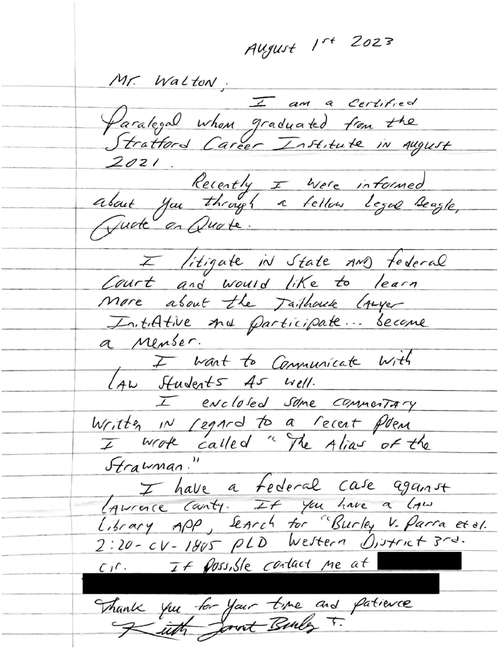 August 1st 2023
Mr. Walton,
I am a Certified
Paralegal whom graduated from the
Stratford Career Institute in August
2021.
Recently I were informed
about you through a fellow Legal Beagle,
Quote on Quote.
I litigate in State AND federal
Court and would like to learn
more about the Jailhouse Lawyer
Initiative and participate... become
a member.
I want to Communicate with
LAW Students As well.
I enclosed some commentary
written in regard to a recent poem
I wrote called "The Alias of the
Strawman."
I have a federal case against
Lawrence County. If you have a LAW
Library APP, search for "Burley V. Parra et al.
2:20-CV-1805 PLD Western District 3rd.
Cir. If possible contact me at
Thank you for your time and patience
Burley